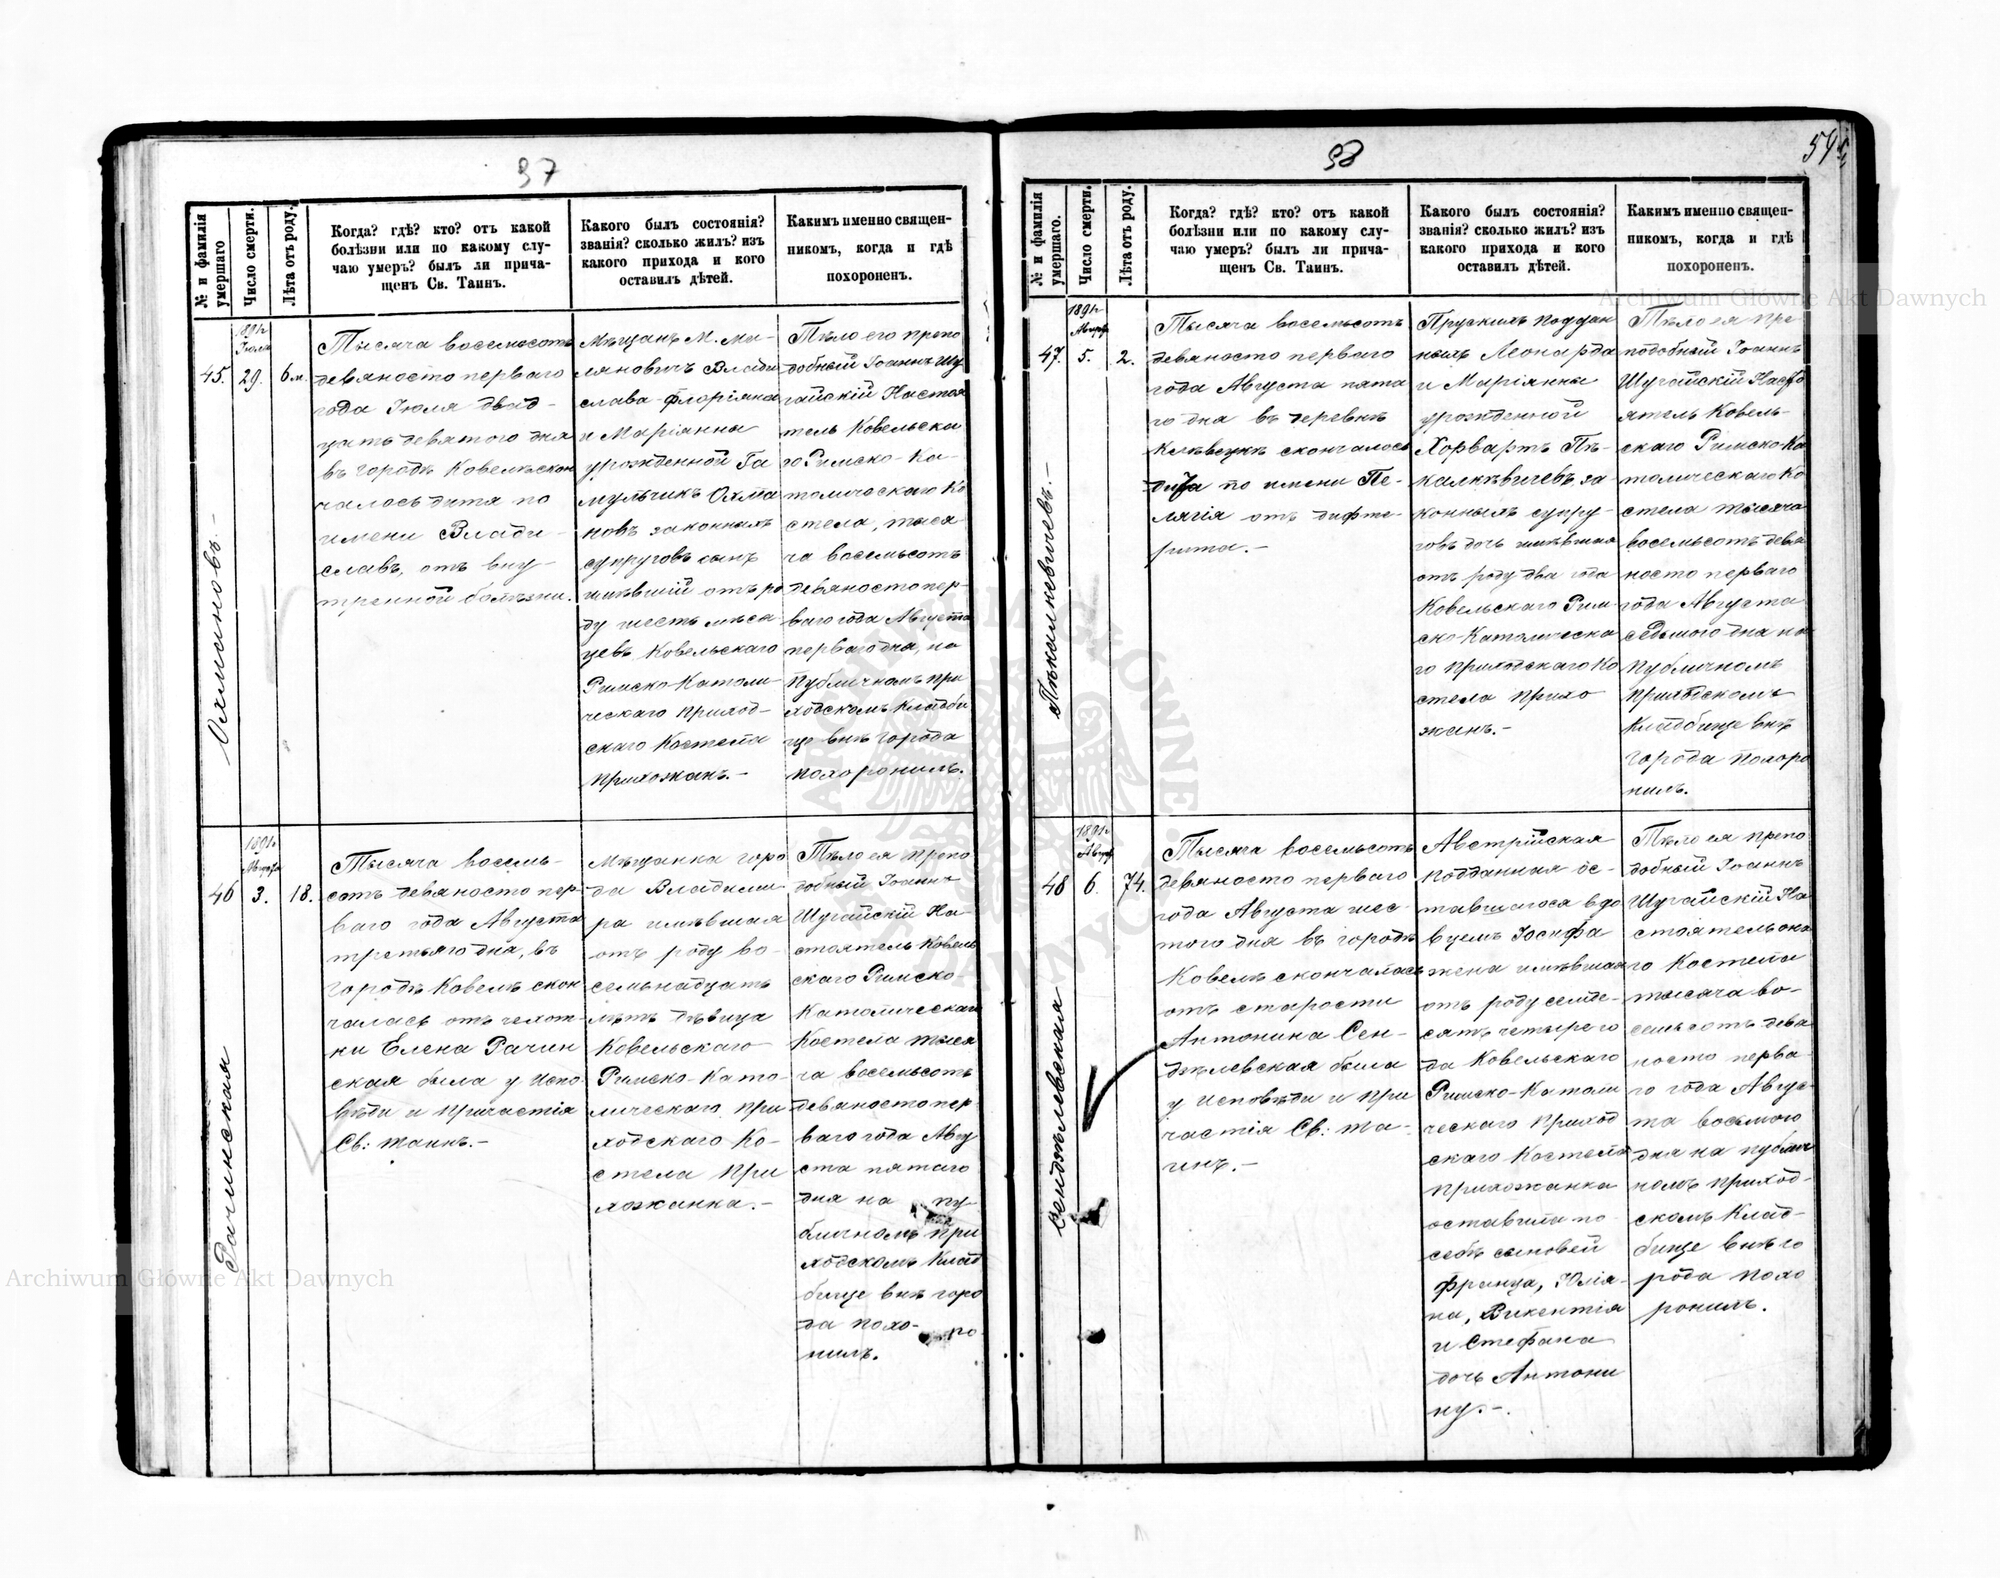 37
№ и фамилія умершаго
Число смерти.
Лѣта отъ роду.
Когда? гдѣ? кто? отъ какой
болѣзни или по какому слу-
чаю умеръ? былъ ли прича-
щенъ Св. Таинъ.
Какого былъ состоянія?
званія? сколько жилъ? изъ
какого прихода и кого
оставилъ дѣтей.
Какимъ именно священ-
никомъ, когда и гдѣ
похороненъ.
45.
Охмановъ.-
1891г
Іюля
29.
6 м.
Тысяча восемьсотъ
девяносто перваго
года Іюля двад-
цать девятого дня
въ городѣ Ковелѣ скон
чалось дитя по
имени Влади-
славъ, отъ вну-
тренной болѣзни.
Мѣщанъ М.
Влади
слава-Флоріяна
и Маріянны
урожденной Га
мульчикъ Охма
новъ законныхъ
супруговъ сынъ
имѣвшій отъ ро
ду шесть мѣся
цевъ Ковельскаго
Римско-Католи
ческаго приход-
скаго Костела
прихожанъ.-
Тѣло его препо
добный Іоаннъ Шу
гайскій Настоя
тель Ковельска
го Римско-Ка-
толическаго Ко
стела, тыся-
ча восемьсотъ
девяносто пер-
ваго года Августа
перваго дня, на
публичномъ при
ходскомъ кладби
щѣ внѣ города
похоронилъ.
46
Рачинская
1891г
Августа
3.
18.
Тысяча восемь-
сотъ девяносто пер-
ваго года Августа
третьяго дня, въ
городѣ Ковелѣ скон
чалась отъ чахот-
ки Елена Рачин
ская была у испо
вѣди и причастія
Св: таинъ.-
Мѣщанка горо
да Владими
ра имѣвшая
отъ роду во-
семьнадцать
лѣтъ дѣвица
Ковельскаго
Римско-Като-
лическаго при
ходскаго Ко-
стела при
хожанка.-
Тѣло ея препо
добный Іоаннъ
Шугайскій На-
стоятель Ковель
скаго Римско
Католическаго
Костела тыся
ча восемьсотъ
девяносто пер-
ваго года Авгу
ста пятаго
дня на пу-
бличномъ при
ходскомъ клад
бище внѣ горо
да похо-ро
нилъ.
38
54
№ и фамилія умершаго.
Число смерти.
Лѣта отъ роду.
Когда? гдѣ? кто? отъ какой
болѣзни или по какому слу-
чаю умеръ? былъ ли прича-
щенъ Св. Таинъ.
Какого былъ состоянія?
званія? сколько жилъ? изъ
какого прихода и кого
оставилъ дѣтей.
Какимъ именно священ-
никомъ, когда и гдѣ
похороненъ.
47.
Пѣкалкевичевъ.-
1891г
Августа
5.
2.
Тысяча восемьсотъ
девяносто перваго
года Августа пята
го дня въ деревнѣ
скончалось
дитя по имени Пе-
лягія отъ дифте-
рита.-
Прускихъ поддан
ныхъ Леонарда
и Маріянны
урожденной
Хорвартъ Пѣ-
калкѣвичевъ за-
конныхъ супру-
говъ дочь имѣвшая
отъ роду два года
Ковельскаго Рим-
ско-Католическа
го приходскаго Ко
стела прихо
жанъ.-
Тѣло ея пре
подобный Іоаннъ
Шугайскій Насто
ятель Ковель-
скаго Римско-Ка
толическаго Ко
стела тысяча
восемьсотъ девя
носто перваго
года Августа
седьмого дня на
публичномъ
приходскомъ
кладбище внѣ
города похоро
нилъ.
48
Сендзѣлевская
1891г
Августа
6.
74.
Тысяча восемьсотъ
девяносто перваго
года Августа шес-
того дня въ городѣ
Ковелѣ скончалась
отъ старости
Антонина Сен-
дзѣлевская была
у исповѣди и при
частія Св: та-
инъ.-
Австрійская
подданная ос-
тавшагося вдо
вцемъ Іосифа
жена имѣвшая
отъ роду семде-
сятъ четыре го
да Ковельскаго
Римско-Католи
ческаго приход
скаго Костела
прихожанка
оставила по
себѣ сыновей
Франца, Юлія-
на, Викентія
и Стефана
дочь Антони
ну.-
Тѣло ея препо
добный Іоаннъ
Шугайскій На
стоятель она
го Костела
тысяча во-
семьсотъ девя
носто перва-
го года Авгус-
та восьмого
дня на публич
номъ приход-
скомъ клад-
бище внѣ го
рода похо
ронилъ.
Archiwum Główne Akt Dawnych
Archiwum Główne Akt Dawnych
ARCHIWUM GŁÓWNE AKT DAWNYCH